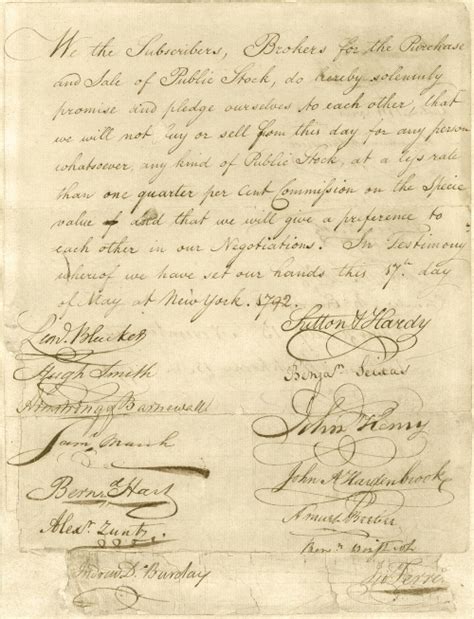 We the Subscribers, Brokers for the Purchase
and Sale of Public Stock, do hereby solemnly
promise and pledge ourselves to each other, that
we will not buy or sell from this day for any person
whatsoever, any kind of Public Stock, at a less rate
than one quarter per Cent Commission on the Specie
value of and that we will give a preference to
each other in our Negotiations. In Testimony
whereof we have set our hands this 17th day
of May at New York. 1792.
Leond. Bleecker
Hugh Smith
Armstrong & Barnewall
Saml. March
Bernd. Hart
Alexr. Zuntz
Andrew D. Barclay
Sutton & Hardy
Benjan. Seixas
John Henry
John A Hardenbrook
Amurt Beebee